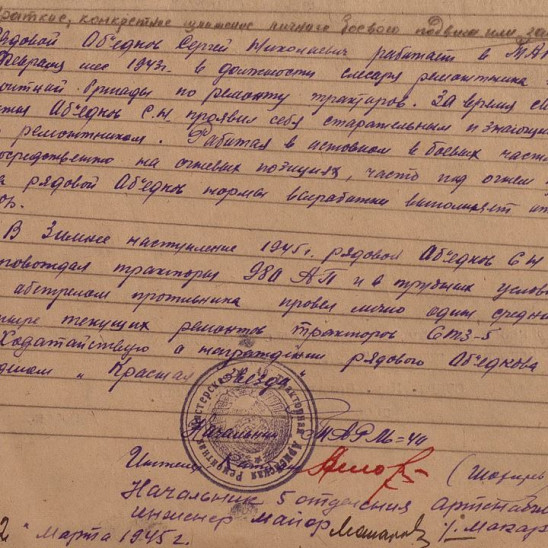 Краткие, конкретные изложение личного боевого подвига или за
рядовой Объедков Сергей Николаевич работает в ТАР
Февраля мес 1943г. в должности слесаря ремонтника
бригады по ремонту тракторов. За время св
Объедков С.Н проявил себя старательным и знающим
ремонтником. Работая в основном в боевых част
посредственно на огневых позициях, часто под огнем
рядовой Объедков нормы выработки выполняет
ов.
В Зимнее наступление 1945г. рядовой Объедков С Н
провождал трактора 980 АП и в трудных услов
обстрелом противника провел лично один средни
тыре текущих ремонтов тракторов СТЗ-5
Ходатайствую о награждении рядового Объедкова
деном „Красная Звезда"
Начальник ТАРМ-40
Инженер Капитан (
Начальник 5 отделения Артснабж
инженер майор /. Макар
2 " Марта 1945 г.